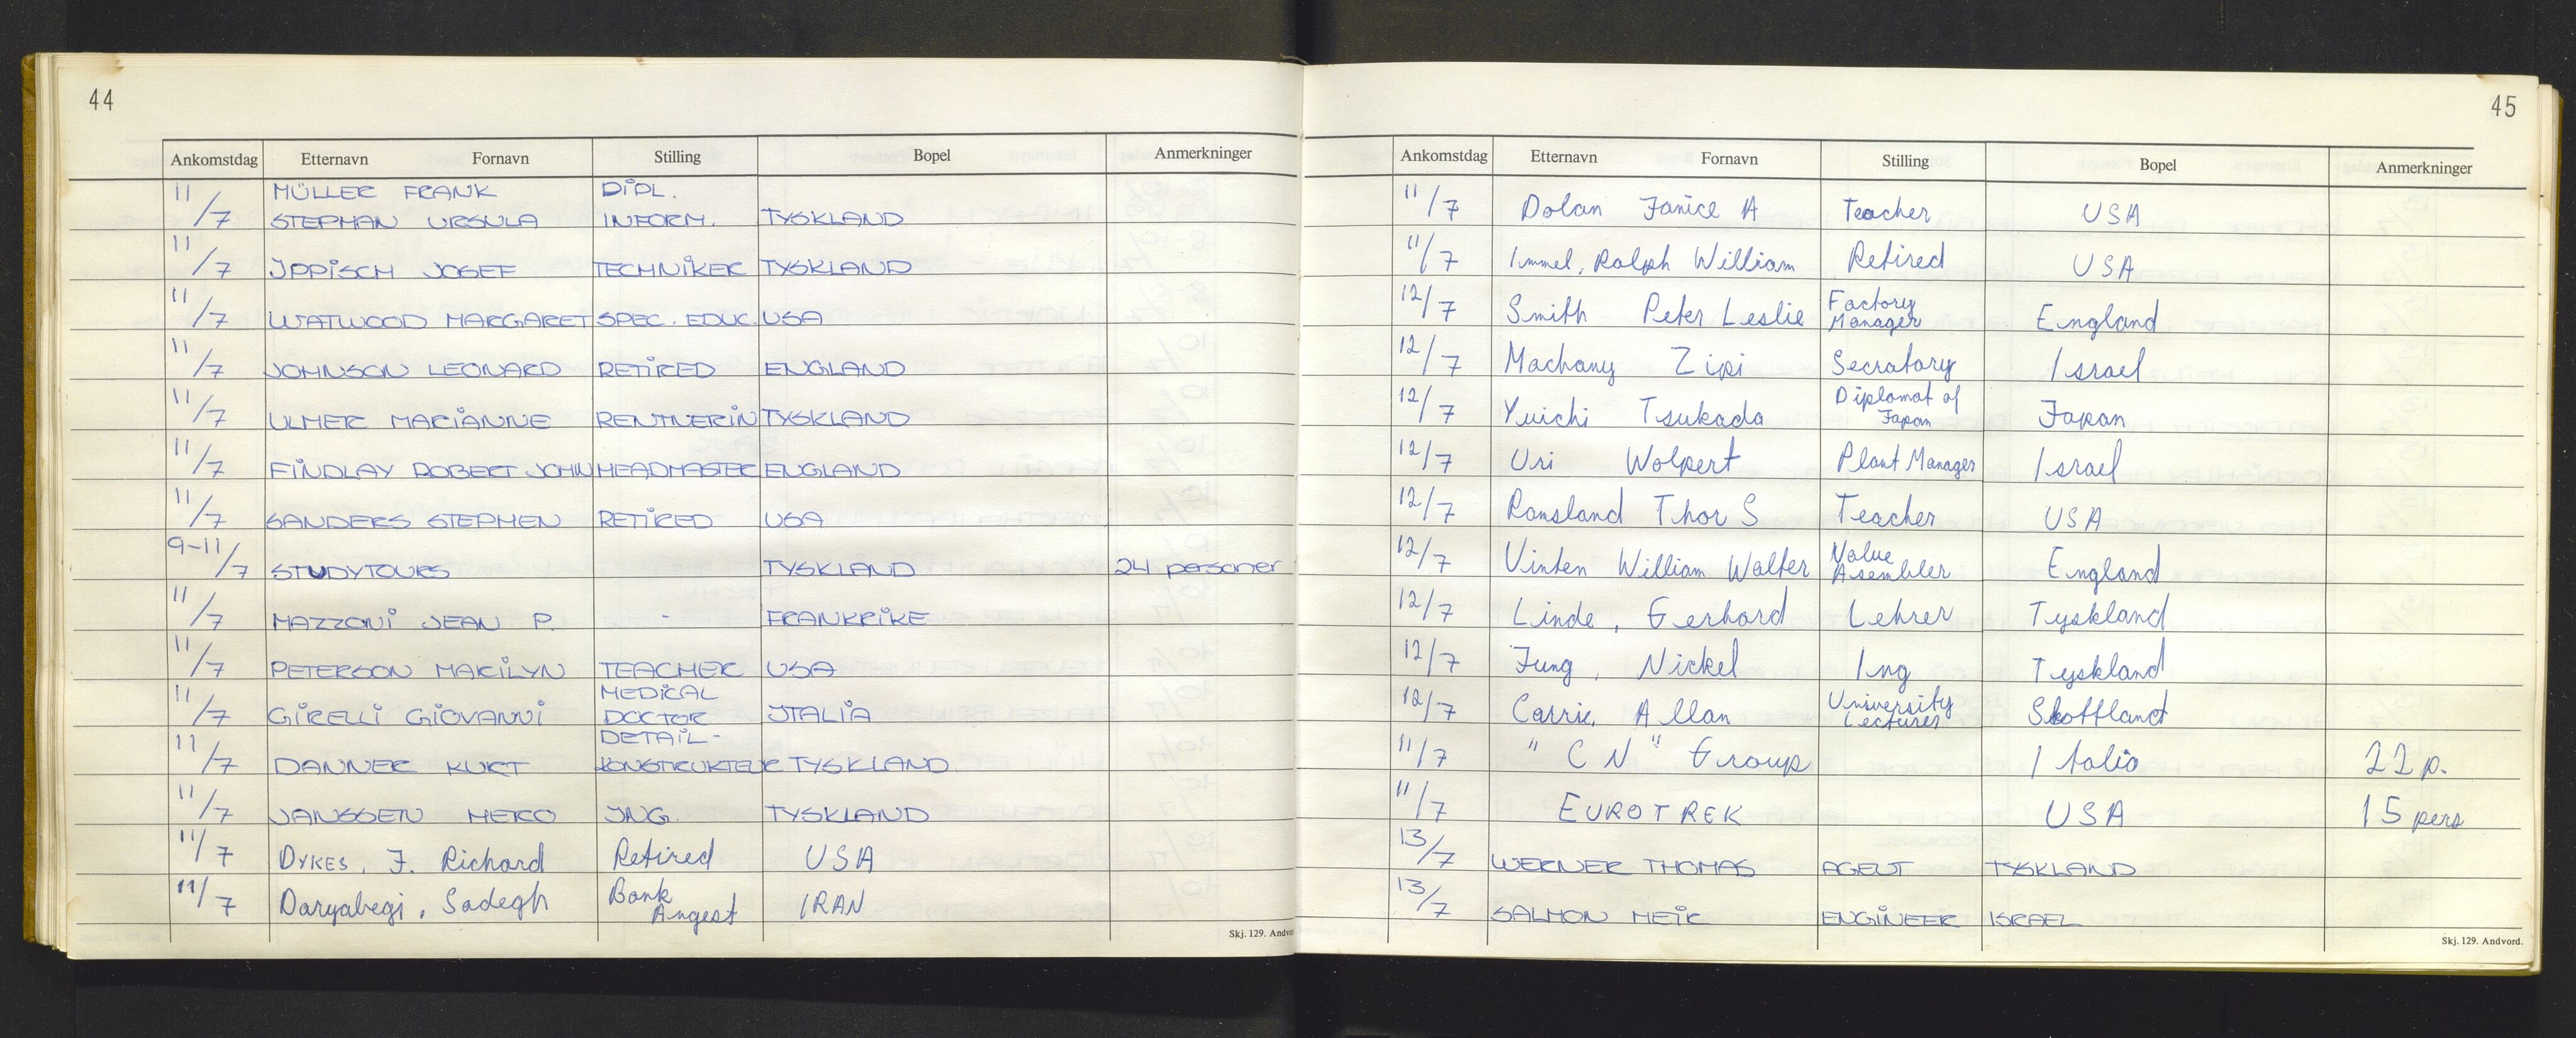 44
Ankomstdag Etternavn Fornavn Stilling Bopel Anmerkninger
11/7 MÜLLER FRANK STEPHAN URSULA DIPL. INFORM. TYSKLAND
11/7 IPPISCH JOSEF TECHNIKER TYSKLAND
11/7 WATWOOD MARGARET SPEC. EDUC. USA
11/7 JOHNSON LEONARD RETIRED ENGLAND
11/7 ULMER MARIANNE RENTNERIN TYSKLAND
11/7 FINDLAY ROBERT JOHN HEADMASTER ENGLAND
11/7 SANDERS STEPHEN RETIRED USA
9-11/7 STUDYTOURS TYSKLAND 24 personer
11/7 MAZZONI JEAN P. - FRANKRIKE
11/7 PETERSON MARILYN TEACHER USA
11/7 GIRELLI GIOVANNI MEDICAL DOCTOR ITALIA
11/7 DANNER KURT DETAIL-KONSTRUKTEUR TYSKLAND
11/7 JANSSEN HERO ING. TYSKLAND
11/7 DYKES, J. Richard Retired USA
11/7 Daryabegi, Sadegh Bank Angest IRAN
Skj. 129. Andvo
45
Ankomstdag Etternavn Fornavn Stilling Bopel Anmerkninger
11/7 Dolan Janice A Teacher USA
11/7 Immel, Ralph William Retired USA
12/7 Smith Peter Leslie Factory Manager England
12/7 Machany Zipi Secratary Israel
12/7 Yuichi Tsukada Diplomat of Japan Japan
12/7 Uri Wolpert Plant Manager Israel
12/7 Ransland Thor S Teacher USA
12/7 Vinten William Walter Value Asembler England
12/7 Linde, Gerhard Lehrer Tyskland
12/7 Jung, Nickel Ing Tyskland
12/7 Carrie, Allan University Lecturer Skottland
11/7 "CN" Group Italia 22 p.
11/7 EUROTREK USA 15 pers
13/7 WERNER THOMAS AGENT TYSKLAND
13/7 SALMON MEIR ENGINEER ISRAEL
Skj. 129. Andvord.